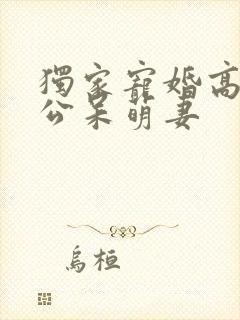 獨家寵婚高
公呆萌妻
烏桓